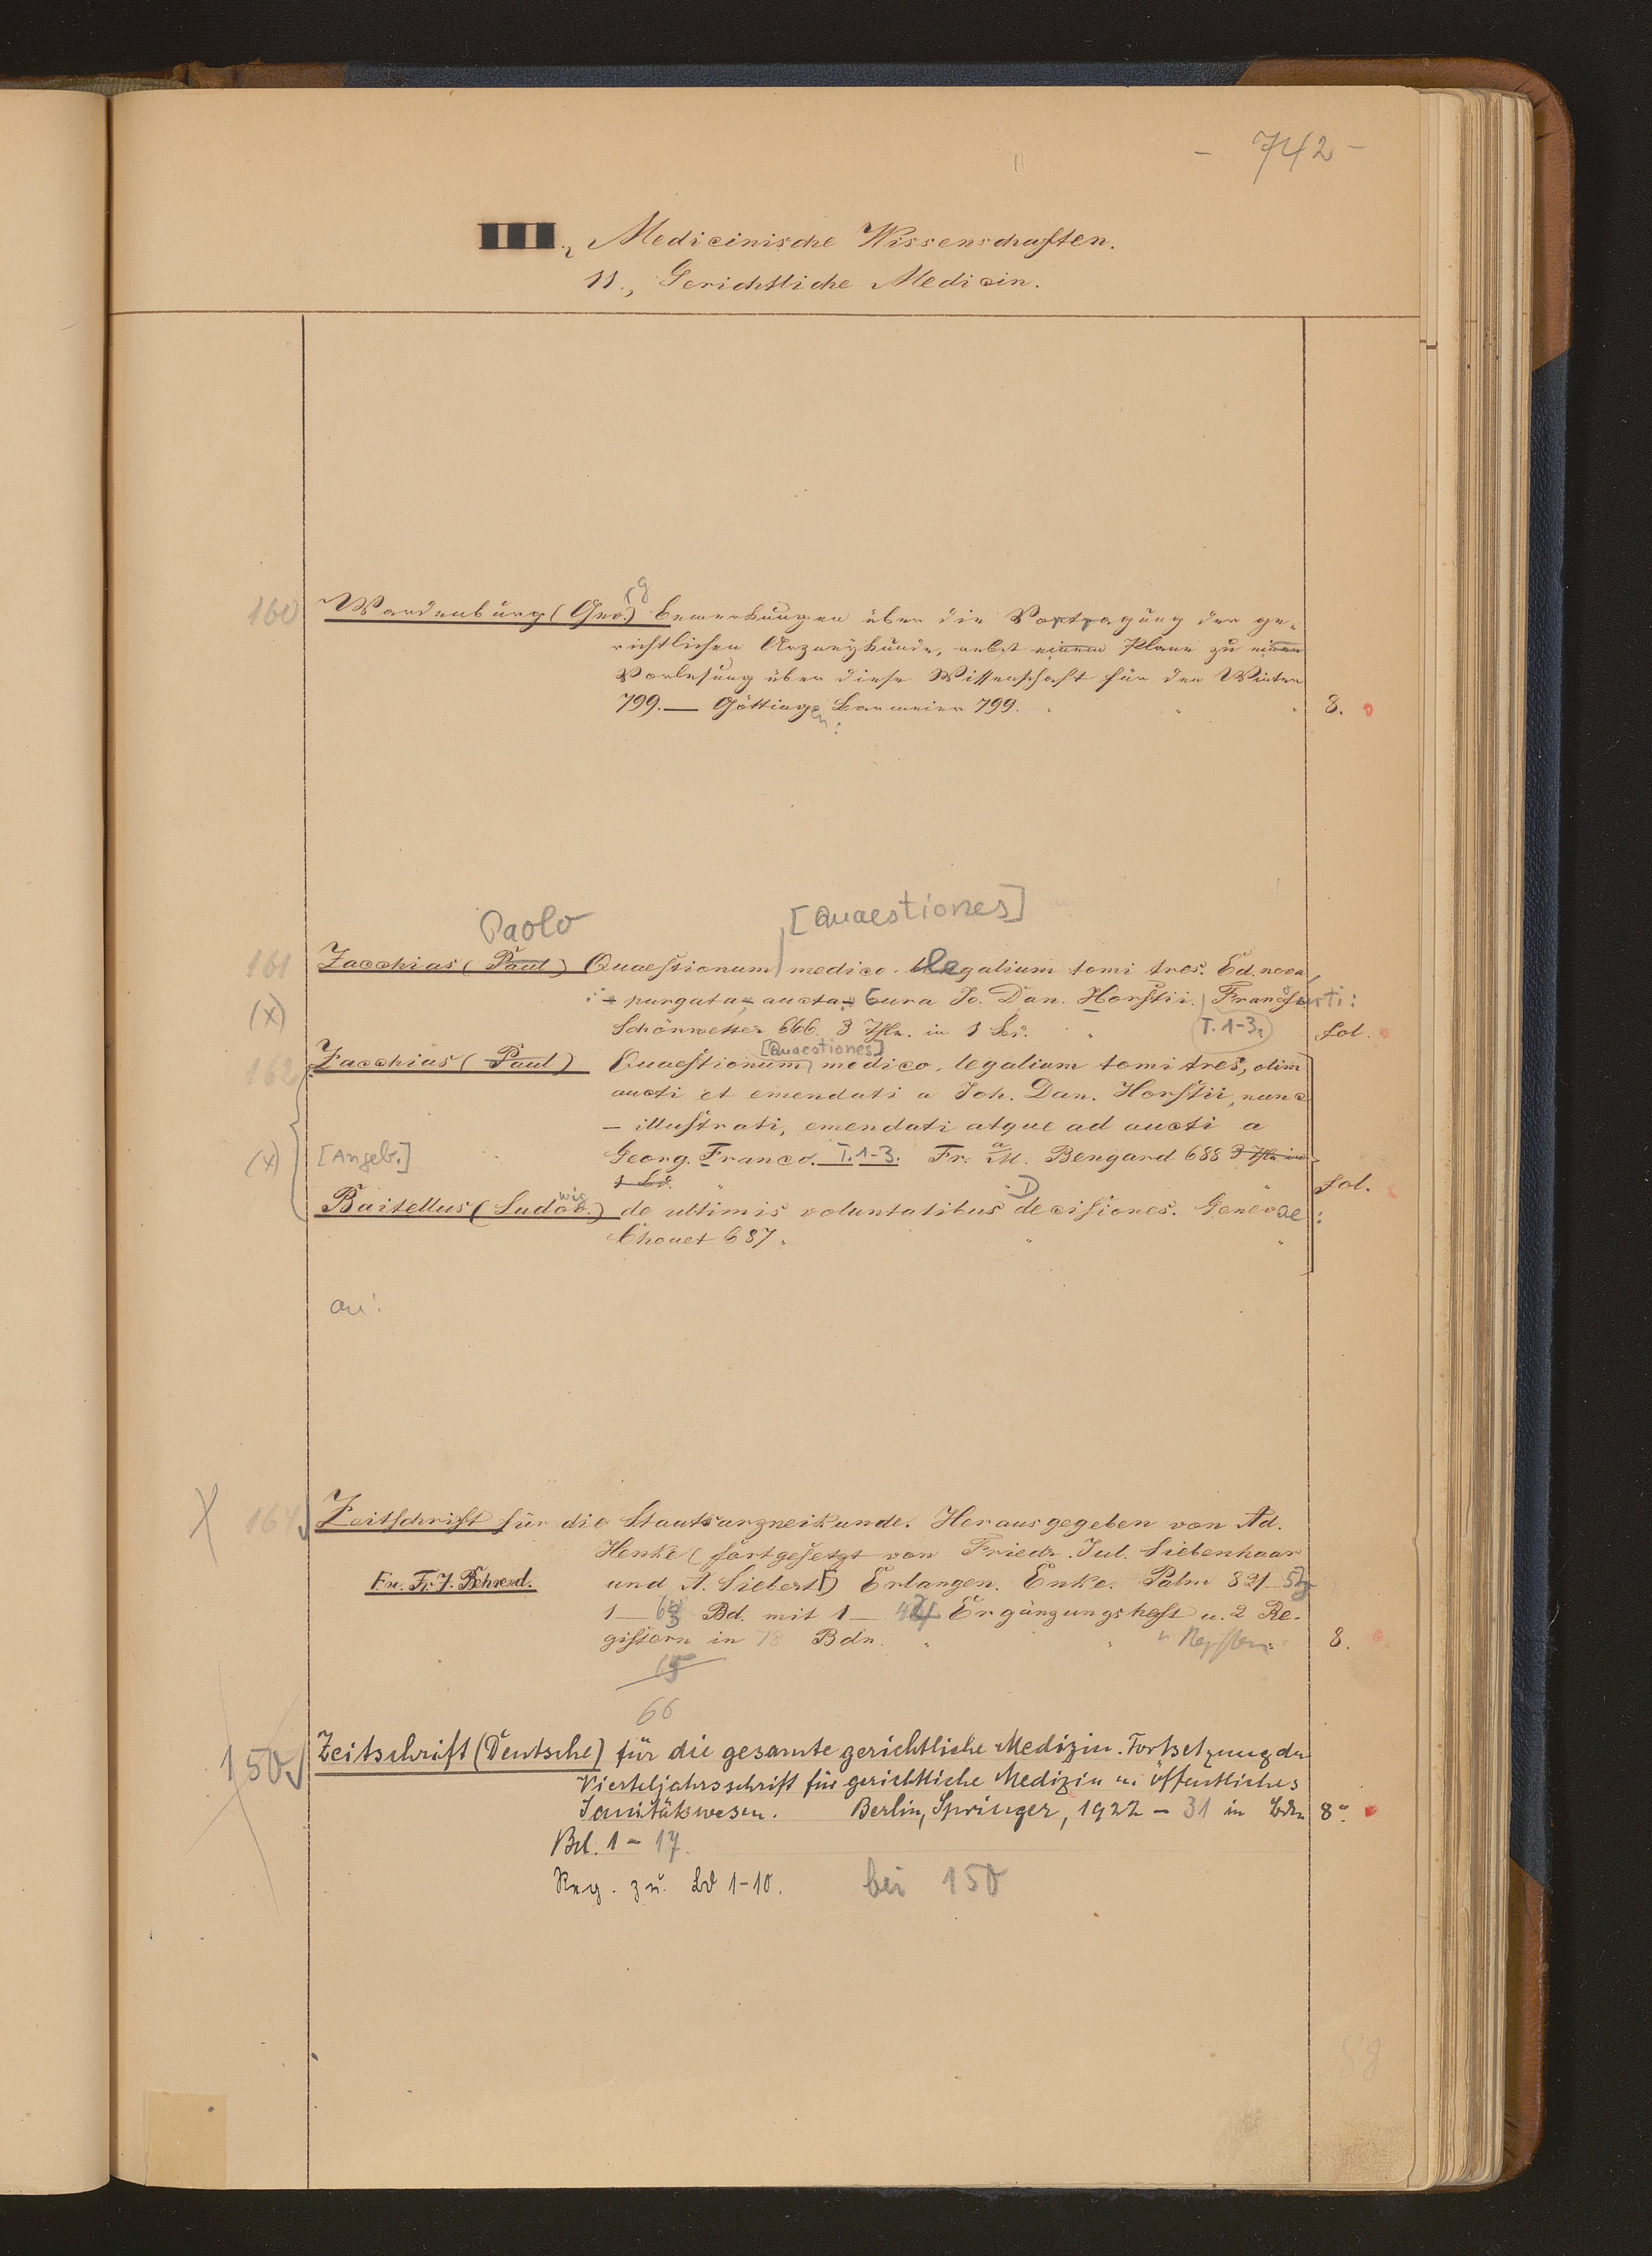 - 742 -
III., Medicinische Wissenschaften.
11., Gerichtliche Medicin.
160 Wardenburg (Geo.) rg Bemerkungen über die Vortragung der ge-
richtlichen Arzneykunde, nebst einem Plane zu einer
Vorlesung über diese Wissenschaft für den Winter
799. — Göttingen: Barmeier 799. 8.
Paolo [Quaestiones]
161 Zacchias (Paul) Quaestionum medico-legalium tomi tres. Ed. nova
(x) purgata, aucta Cura Jo. Dan. Horstii. Francofurti:
Schönwetter 666. 3 Thle. in 1 Bd. T. 1-3. fol.
[Quaestiones]
162 Zacchias (Paul) Quaestionum medico-legalium tomi tres, olim
aucti et emendati a Joh. Dan. Horstii, nunc
— illustrati, emendati atque ad aucti a
(x) [Angeb.] Georg. Franco. T. 1-3. Fr. a M. Bengard 688 3 Thle in
1 Bd. fol.
Baitellus (Ludov.) wig de ultimis voluntatibus Decisiones. Genevae:
Chouet 687.
an:
X 164 Zeitschrift für die Staatsarzneikunde. Herausgegeben von Ad.
Henke (fortgesetzt von Friedr. Jul. Siebenhaar
Fr. J. Behrend. und A. Siebert) Erlangen. Enke. Palm 821-53
1— Bd. mit 1— Ergänzungsheft u. 2 Re-
gistern in 78 Bdn. 8.
65
66
150 Zeitschrift (Deutsche) für die gesamte gerichtliche Medizin. Fortsetzung der
Vierteljahrsschrift für gerichtliche Medizin u. öffentliches
Sanitätswesen. Berlin, Springer, 1922 - 31 in Bdn 8°.
Bd. 1 - 17.
Reg. zu Bd 1-10. bei 150